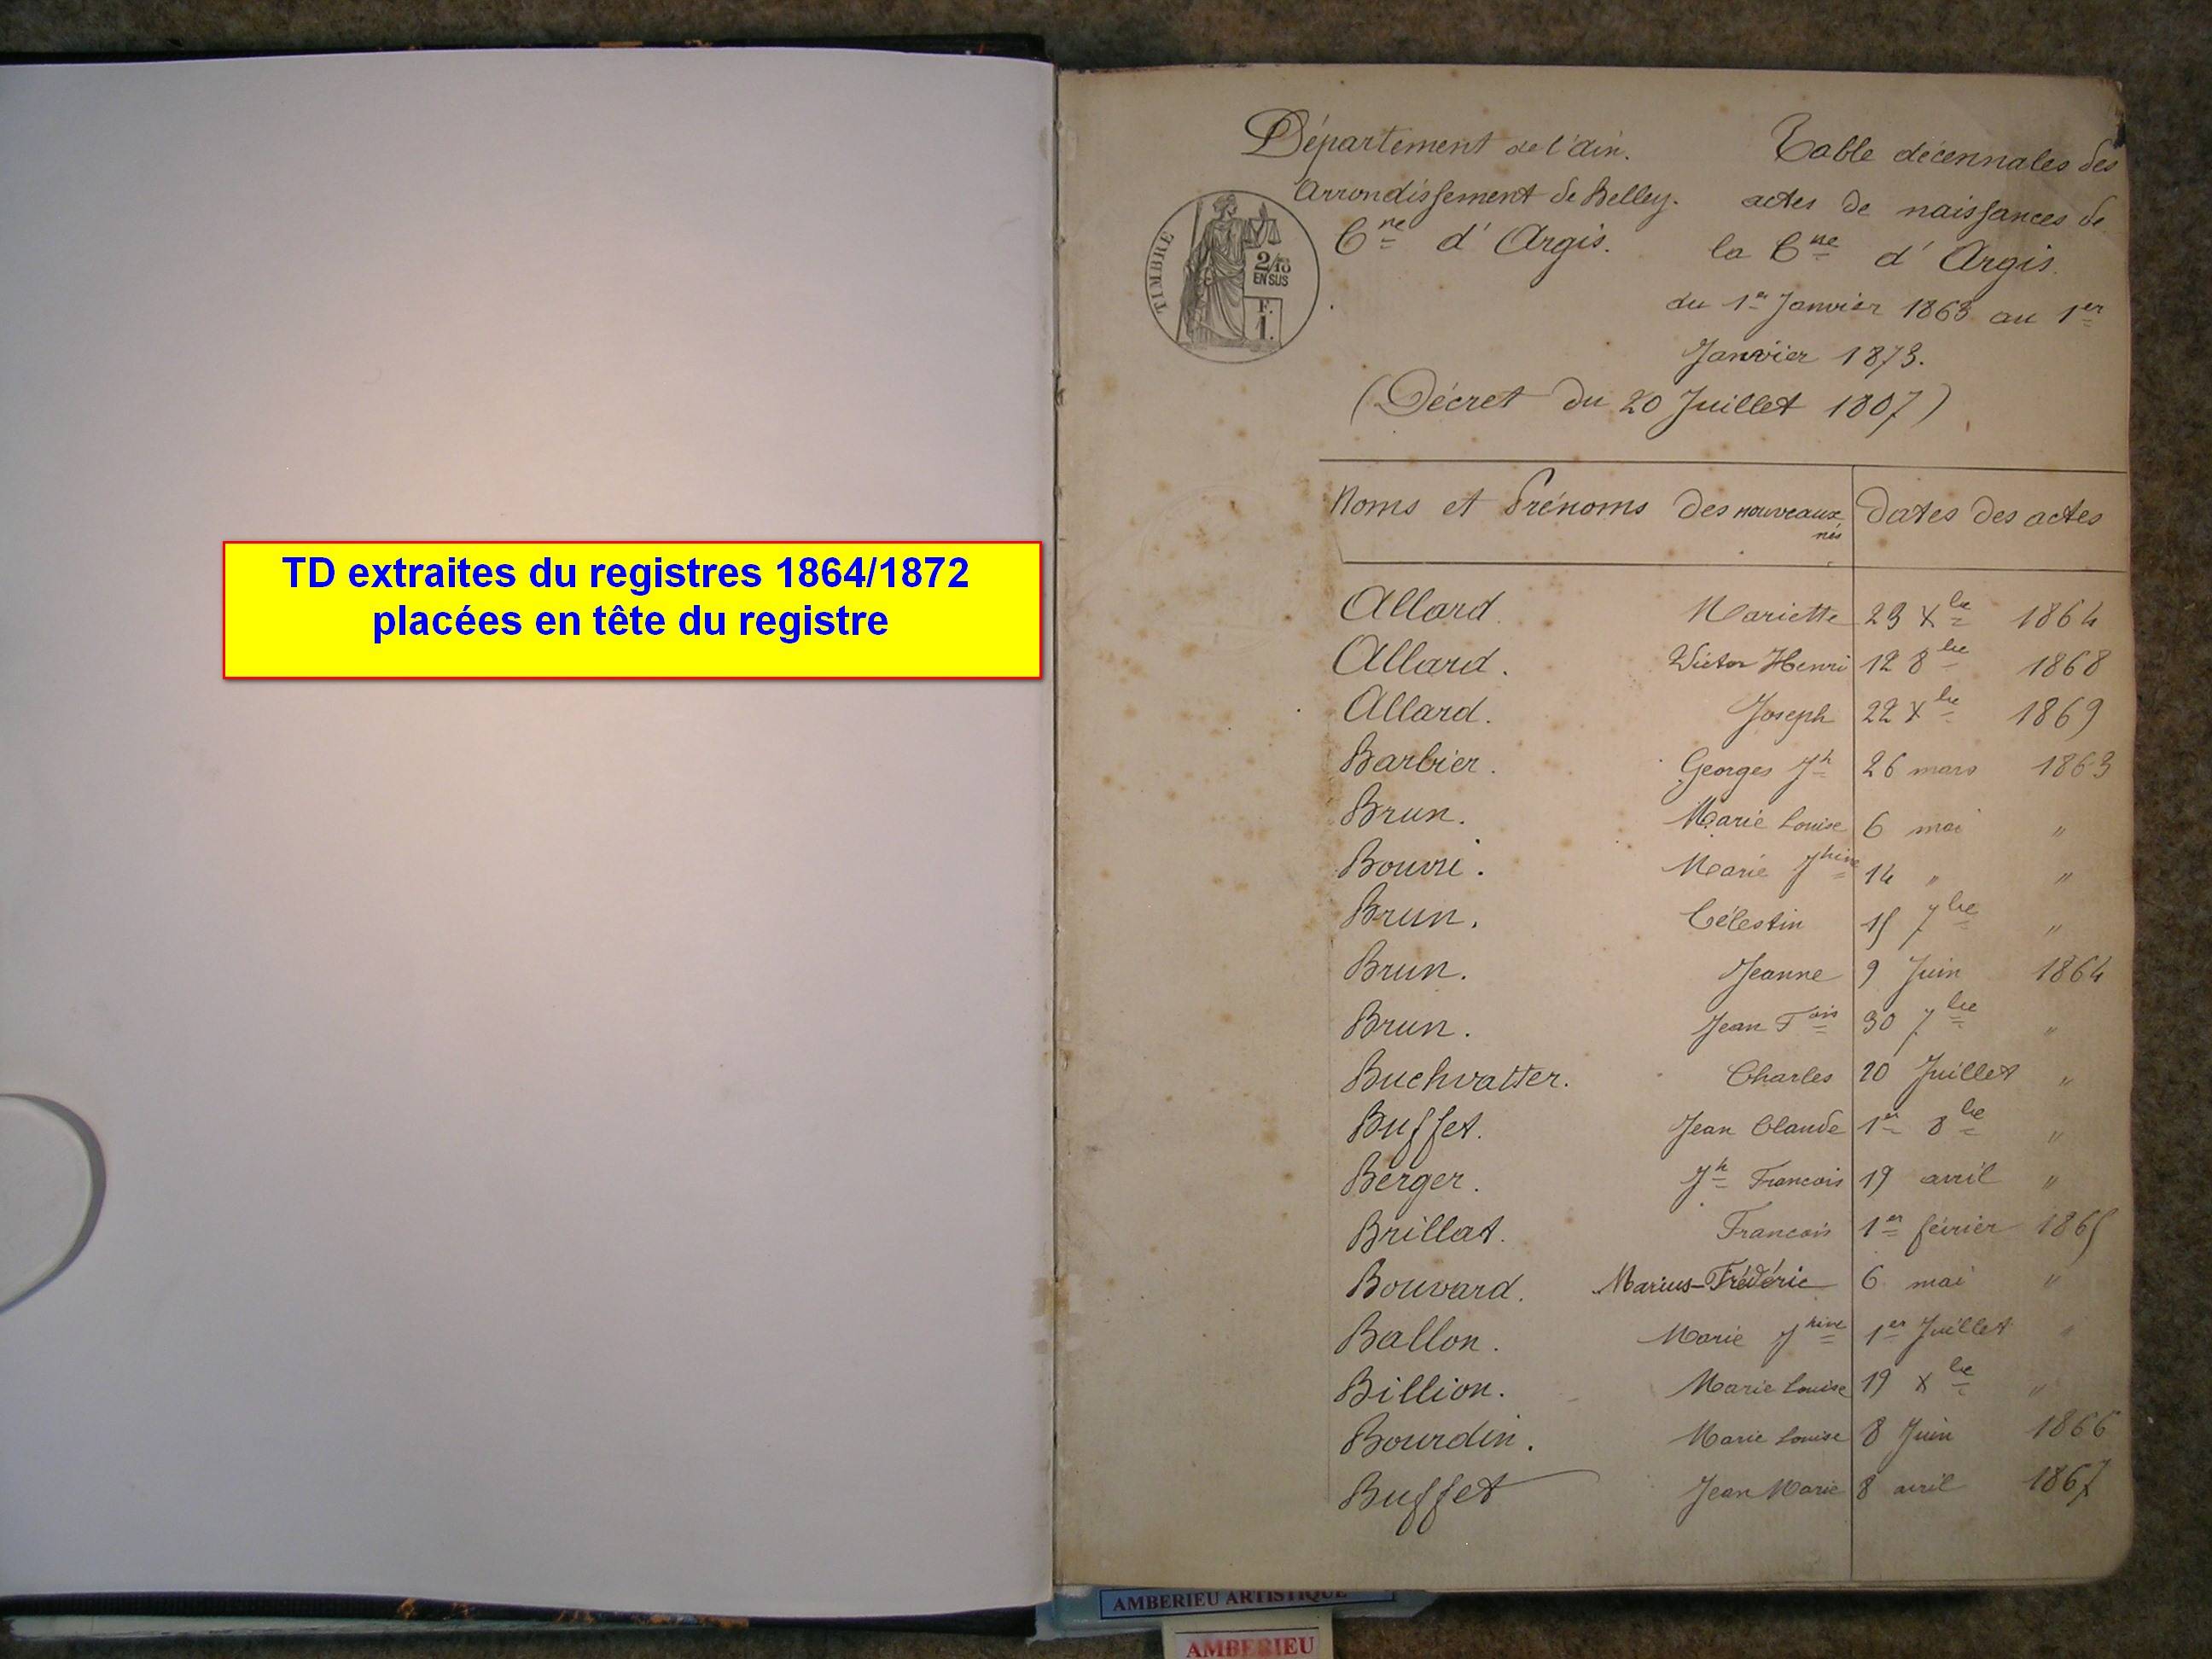 TD extraites du registres 1864/1872
placées en tête du registre
Département de l'ain.
Arrondissement de Belley.
Cne d'Argis.
TIMBRE
2/10
EN SUS
F.
1.
Table décennales des
actes de naissances de
la Cne d'Argis.
du 1er Janvier 1863 au 1er
Janvier 1873.
(Décret du 20 Juillet 1807)
Noms et Prénoms des nouveaux nés Dates des actes
Allard. Mariette 23 Xbre 1864
Allard. Victor Henri 12 8bre 1868
Allard. Joseph 22 Xbre 1869
Barbier. Georges Jh 26 mars 1863
Brun. Marie Louise 6 mai "
Bouvri. Marie Jhine 14 " "
Brun. Célestin 15 7bre "
Brun. Jeanne 9 Juin 1864
Brun. Jean Fois 30 7bre "
Buchvatter. Charles 20 Juillet "
Buffet. Jean Claude 1er 8bre "
Berger. Jh Francois 19 avril "
Brillat. Francois 1er février 1865
Bouvard. Marius-Frédéric 6 mai "
Ballon. Marie Jhine 1er Juillet "
Billion. Marie Louise 19 Xbre "
Bourdin. Marie Louise 8 Juin 1866
Buffet Jean Marie 8 avril 1867
AMBERIEU ARTISTIQUE
AMBERIEU